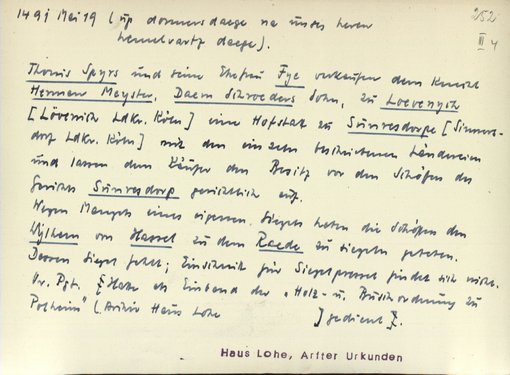 1491 Mai 19 (up donnersdaege na unses heren
hemelvartz daege).
252
II 4
Thonis Spyrs und seine Ehefrau Fye verkaufen dem Knecht
Herman Meyster, Daem Schroeders Sohn, zu Loevenysch
[Lövenich Ldkr. Köln] eine Hofstat zu Sunresdorpe [Sinners-
dorf Ldkr. Köln] mit den einzeln beschriebenen Ländereien
und lassen dem Käufer den Besitz vor den Schöffen des
Gerichts Sunresdorp gerichtlich auf.
Wegen Mangels eines eigenen Siegels haben die Schöffen den
Wylhem von Hassel zu dem Raede zu siegeln gebeten.
Dessen Siegel fehlt; Einschnitt für Siegelpressel findet sich nicht.
Or. Pgt. [Hatte als Einband der "Holz- u. Buschordnung zu
Polheim" (Archiv Haus Lohe ) gedient].
Haus Lohe, Arfter Urkunden